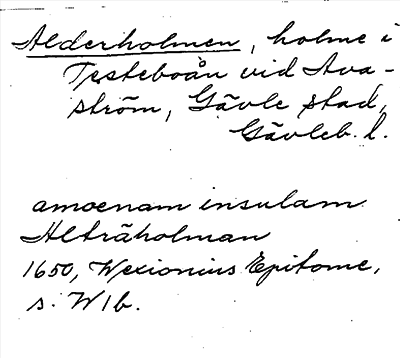 Alderholmen, holme i
Testeboån vid Ava-
ström, Gävle stad,
Gävleb. l.
amoenam insulam
Alträholman
1650, Wexionius Epitome,
s. W1b.